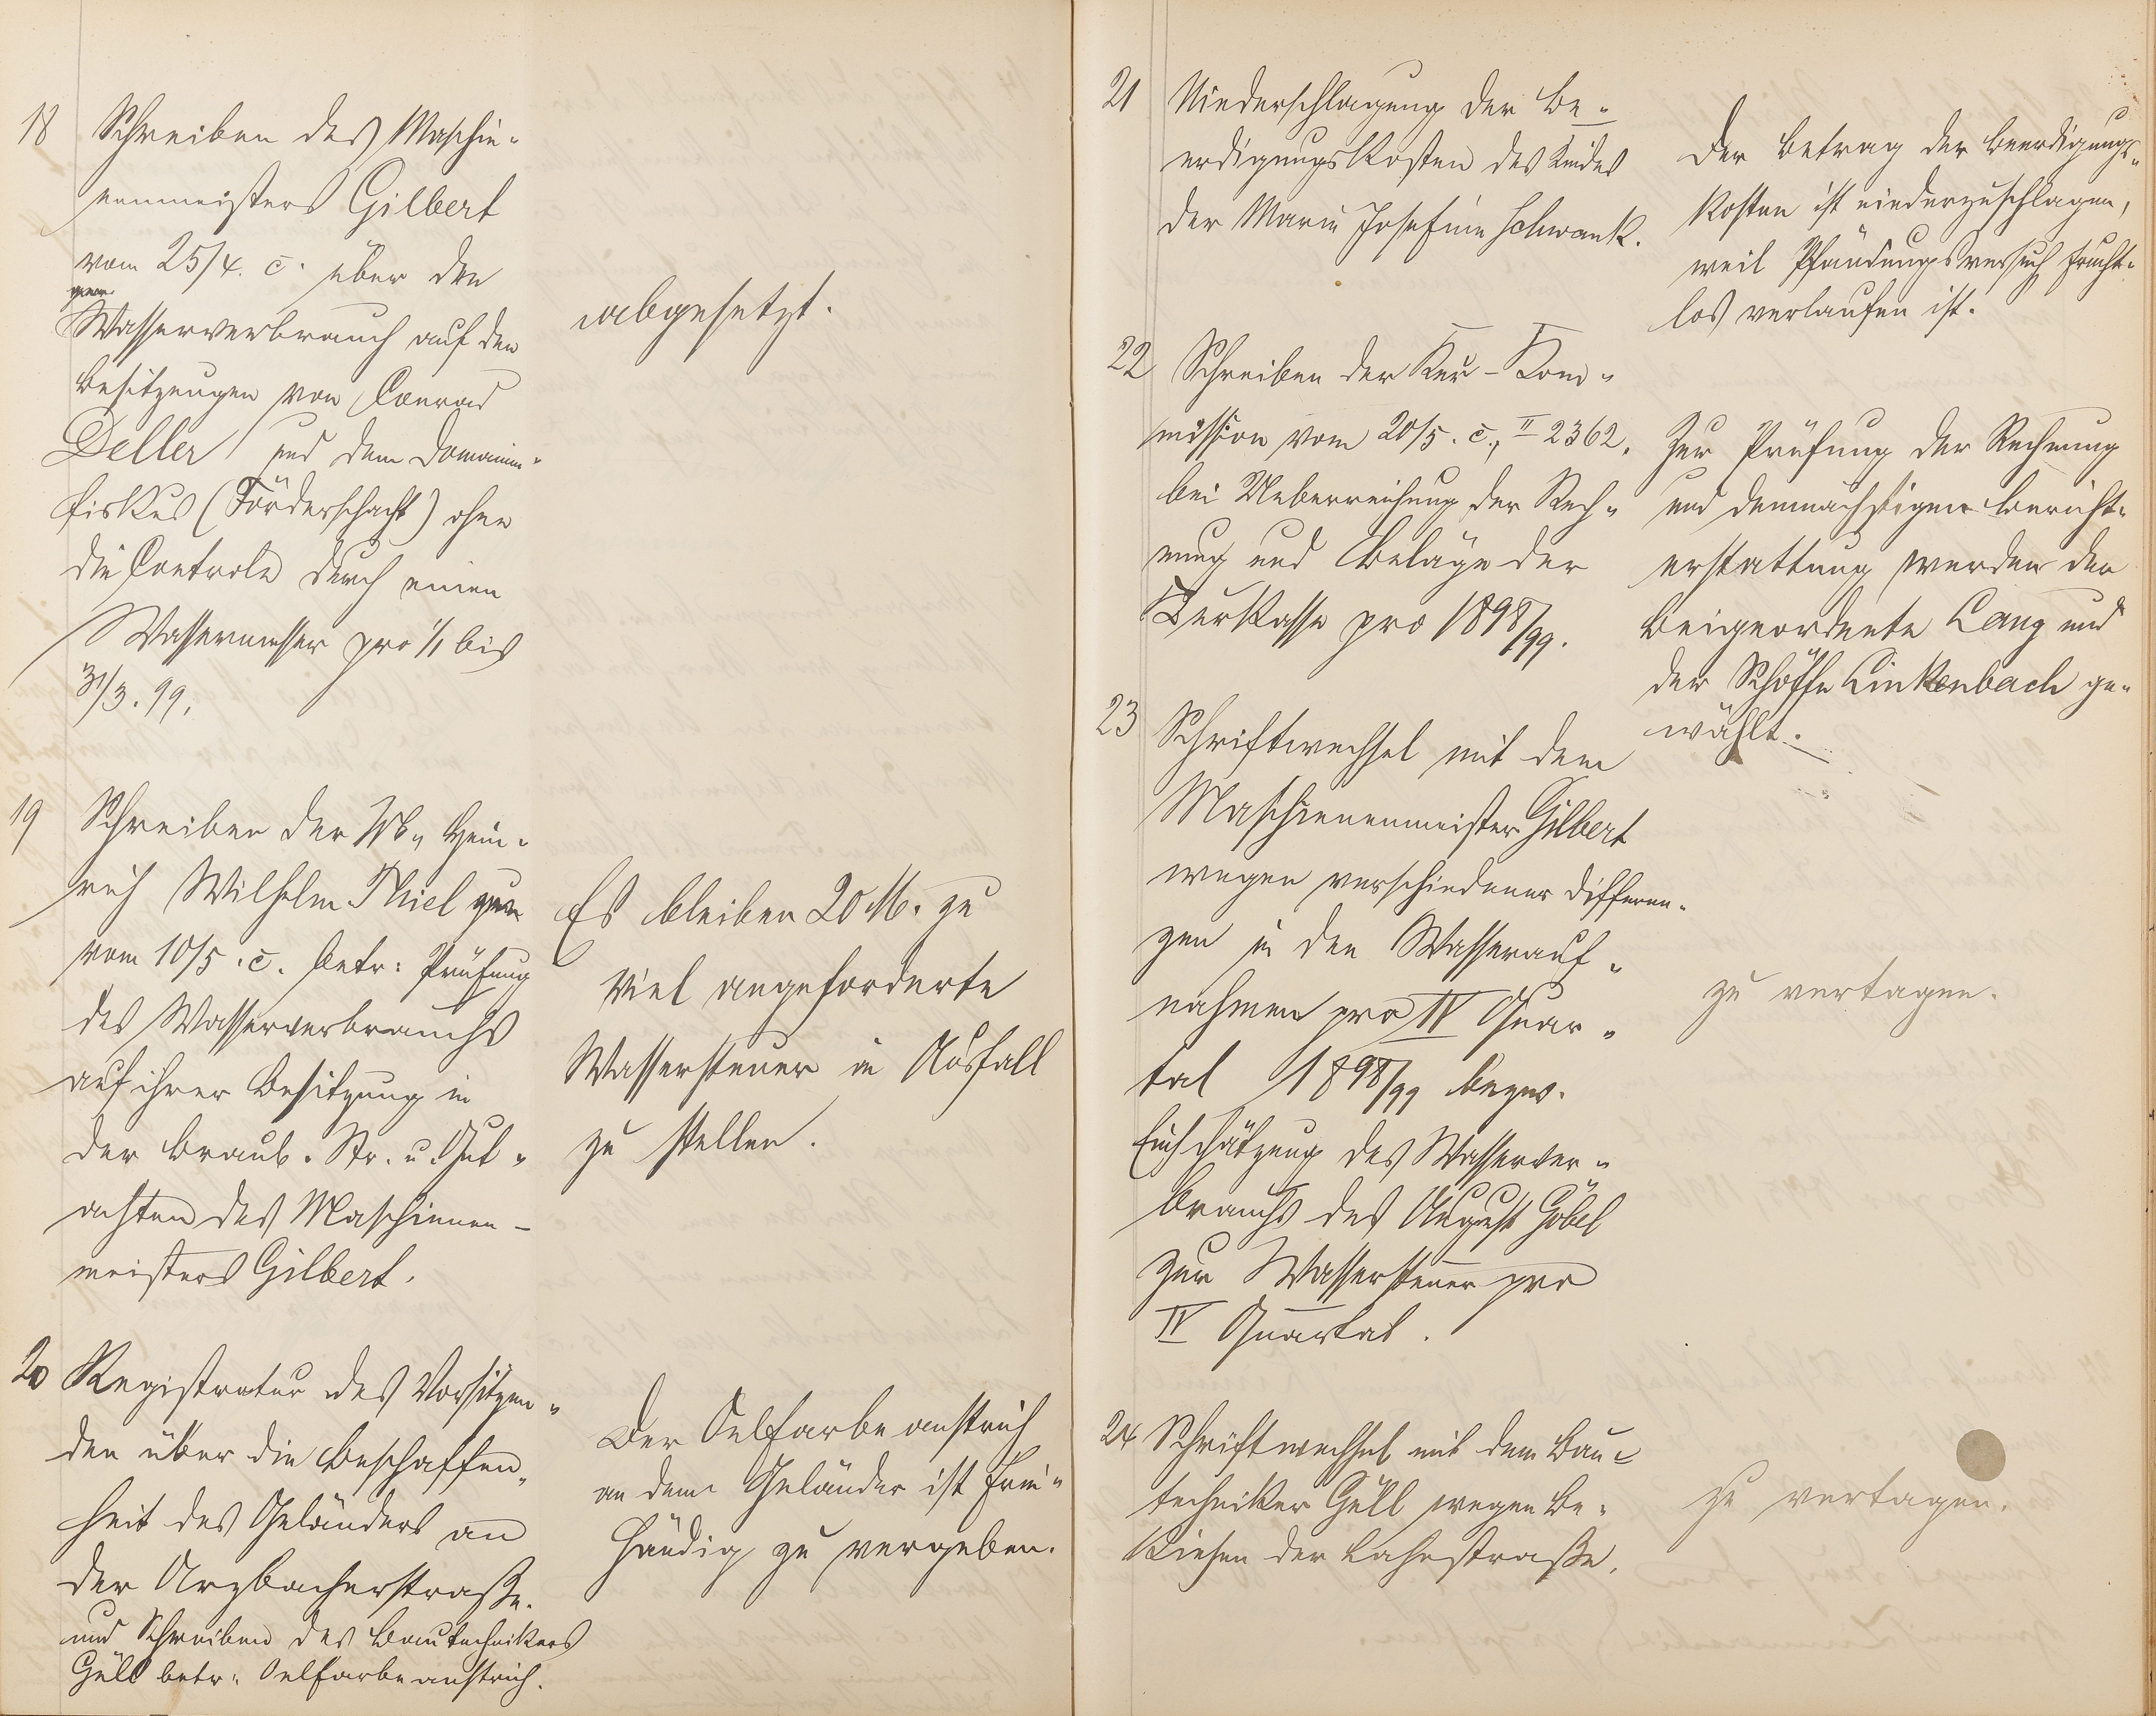 18 Schreiben des Maschie-
nenmeisters Gilbert
vom 25/4. c. über den
Wasserverbrauch auf den
Besitzungen von Conrad
Deller und dem Domainen-
fiskus (Förderschacht) ohne
die Controle durch einen
Wassermesser pro 1/1 bis
31/3. 99.
abgesetzt.
19 Schreiben der Wb. Hein-
rich Wilhelm Thiel
vom 10/5. c. betr: Prüfung
des Wasserverbrauchs
auf ihrer Besitzung in
der Braub. Str. u. Gut-
achten des Maschienen-
meisters Gilbert.
Es bleiben 20 M. zu
viel angeforderte
Wassersteuer in Ausfall
zu stellen.
20 Registratur des Vorsitzen-
den über die Beschaffen-
heit des Geländers an
der Arzbacherstraße.
und Schreiben des Bautechnikers
Güll betr: Oelfarbeanstrich.
Der Oelfarbeanstrich
an dem Geländer ist frei-
händig zu vergeben.
21 Niederschlagung der Be-
erdigungskosten des Kindes
der Marie Josefine Schwank.
Der Betrag der Beerdigungs-
kosten ist niederzuschlagen,
weil Pfändungsversuch frucht-
los verlaufen ist.
22 Schreiben der Kur-Kom-
mission vom 20/5. c., II 2362.
bei Ueberreichung der Rech-
nung und Beläge der
Kurkasse pro 1898/99.
Zur Prüfung der Rechnung
und demnächstigen Bericht-
erstattung werden der
Beigeordnete Lang und
der Schöffe Linkenbach ge-
wählt.
23 Schriftwechsel mit dem
Maschienenmeister Gilbert
wegen verschiedener Differen-
zen in den Wasserauf-
nahmen pro IV Quar-
tal 1898/99 bezw.
Einschätzung des Wasserver-
brauchs des August Göbel
zur Wassersteuer pro
IV Quartal.
zu vertagen.
24 Schriftwechsel mit dem Bau-
techniker Güll wegen Be-
kiesen der Lahnstraße.
zu vertagen.